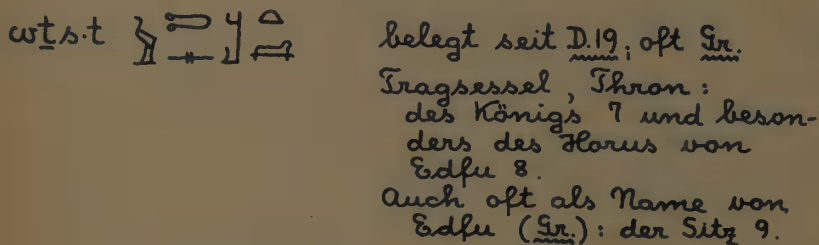 wṯs.t 𓍞𓍿𓊃𓍋𓏏𓊨 belegt seit D.19; oft Gr.
Tragsessel, Thron:
des Königs 7 und beson-
ders des Horus von
Edfu 8.
Auch oft als Name von
Edfu (Gr.): der Sitz 9.